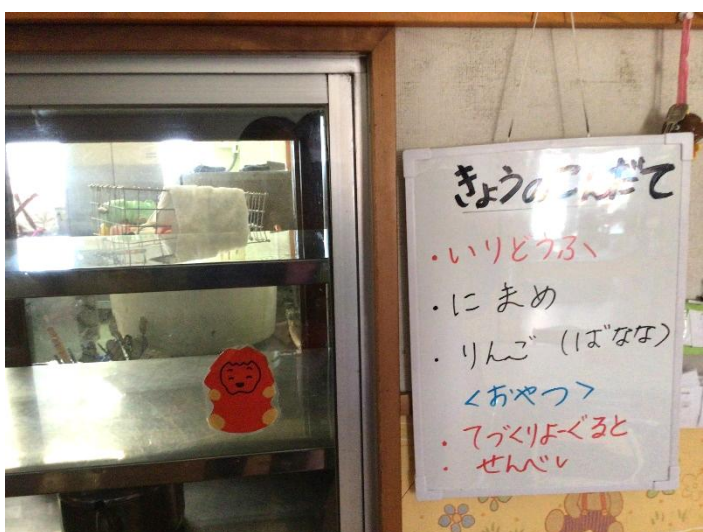 きょうのこんだて
・いりどうふ
・にまめ
・りんご(ばなな)
<おやつ>
・てづくりよーぐると
・せんべい